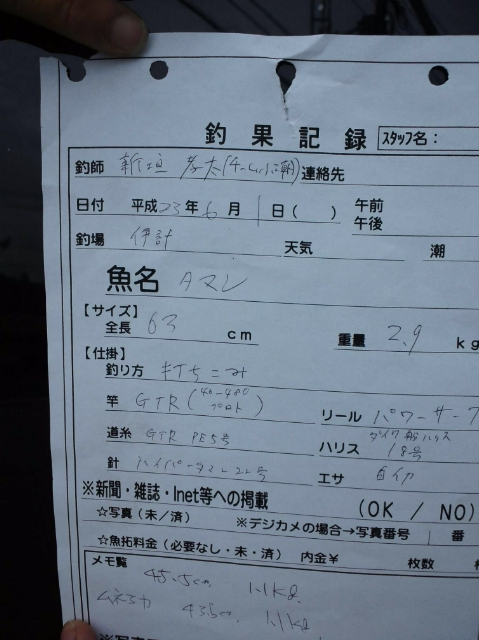 釣果記録
スタッフ名：
釣師 新垣 孝太(チーム小朝) 連絡先
日付 平成23年6月1日( ) 午前 午後
釣場 伊計 天気 潮
魚名 タマン
【サイズ】
全長 63 cm 重量 2.9 kg
【仕掛】
釣り方 打ちこみ
竿 GTR(40-480 プロト) リール パワーサーフ
道糸 GTR PE5号 ハリス ダイワ船ハリス 18号
針 ハイパータマン22号 エサ 白イカ
※新聞・雑誌・Inet等への掲載 (OK / NO)
☆写真(未/済) ※デジカメの場合→写真番号 番
☆魚拓料金(必要なし・未・済) 内金¥ 枚数
メモ覧
45.5cm 1.1kg
43.5cm 1.1kg